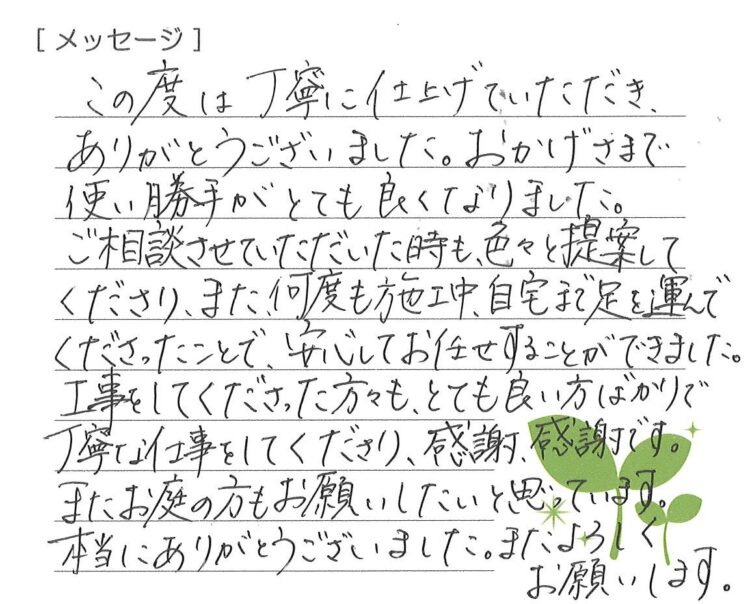 [メッセージ]
この度は丁寧に仕上げていただき、
ありがとうございました。おかげさまで
使い勝手がとても良くなりました。
ご相談させていただいた時も、色々と提案して
くださり、また、何度も施工中、自宅まで足を運んで
くださったことで、安心してお任せすることができました。
工事をしてくださった方々も、とても良い方ばかりで
丁寧な仕事をしてくださり、感謝、感謝です。
またお庭の方もお願いしたいと思っています。
本当にありがとうございました。またよろしく
お願いします。